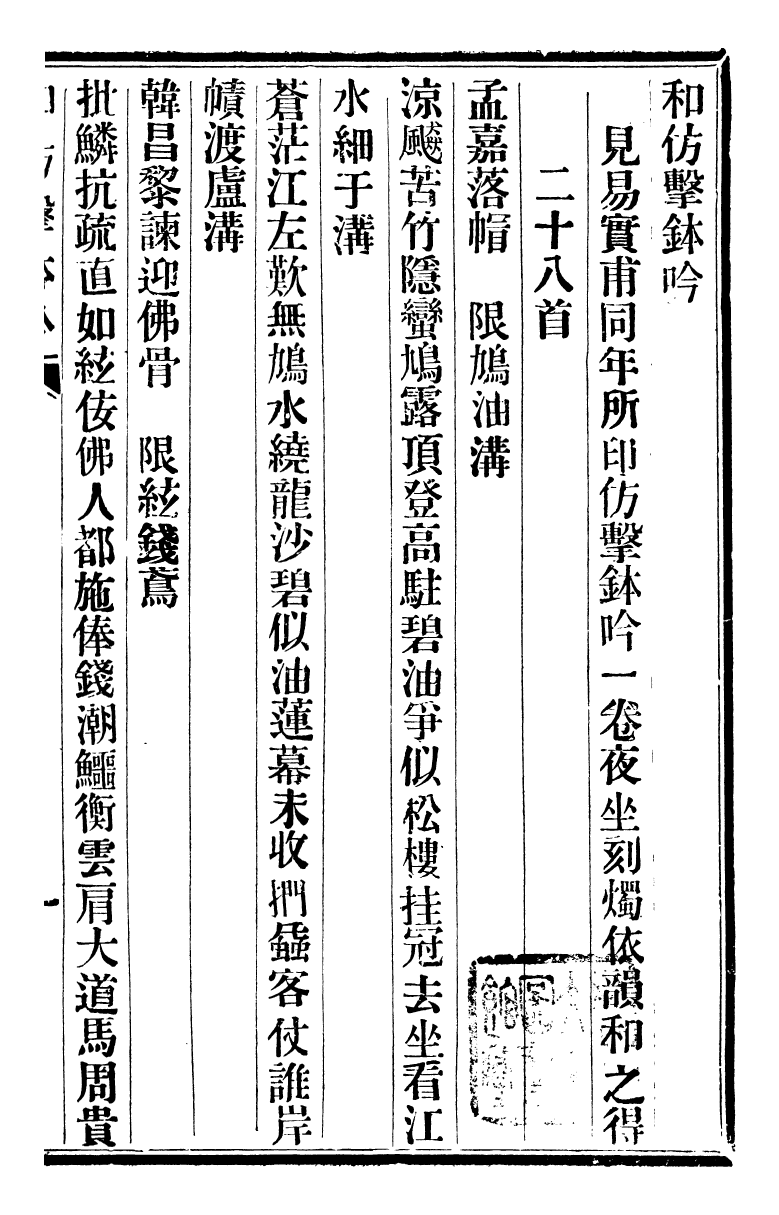 和仿擊鉢吟
見易實甫同年所印仿擊鉢吟一卷夜坐刻燭依韻和之得
二十八首
孟嘉落帽　限鳩油溝
涼颸苦竹隱蠻鳩露頂登高駐碧油爭似松樓挂冠去坐看江
水細于溝
蒼茫江左歎無鳩水繞龍沙碧似油蓮幕未收捫蝨客仗誰岸
幘渡盧溝
韓昌黎諫迎佛骨　限絃錢鳶
批鱗抗疏直如絃佞佛人都施俸錢潮鱷衡雲肩大道馬周貴